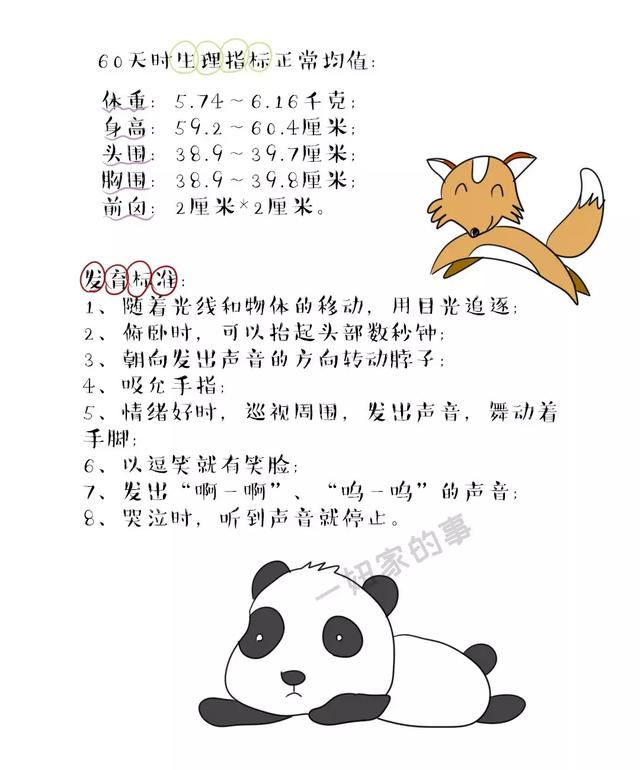 60天时生理指标正常均值:
体重: 5.74~6.16千克;
身高: 59.2~60.4厘米;
头围: 38.9~39.7厘米;
胸围: 38.9~39.8厘米;
前囟: 2厘米×2厘米。
发育标准:
1、随着光线和物体的移动，用目光追逐;
2、俯卧时，可以抬起头部数秒钟;
3、朝向发出声音的方向转动脖子;
4、吸允手指;
5、情绪好时，巡视周围，发出声音，舞动着
手脚;
6、以逗笑就有笑脸;
7、发出“啊一啊”、“呜一呜”的声音;
8、哭泣时，听到声音就停止。
一妞家的事